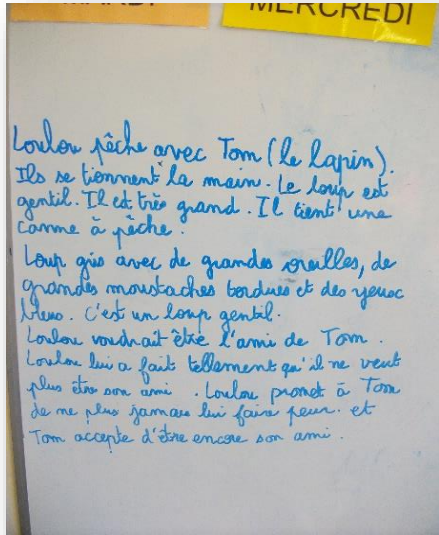 MARDI
MERCREDI
Loulou pêche avec Tom (le lapin).
Ils se tiennent la main. Le loup est
gentil. Il est très grand. Il tient une
canne à pêche.
Loup gris avec de grandes oreilles, de
grandes moustaches tordues et des yeux
bleus. C'est un loup gentil.
Loulou voudrait être l'ami de Tom.
Loulou lui a fait tellement qu'il ne veut
plus être son ami. Loulou promet à Tom
de ne plus jamais lui faire peur. et
Tom accepte d'être encore son ami.